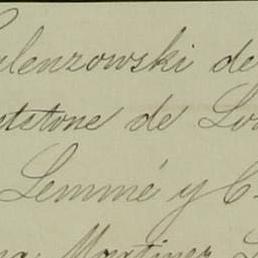 ulenzowski de
etstone de Lo
Lemmé y C.
na Martinez L